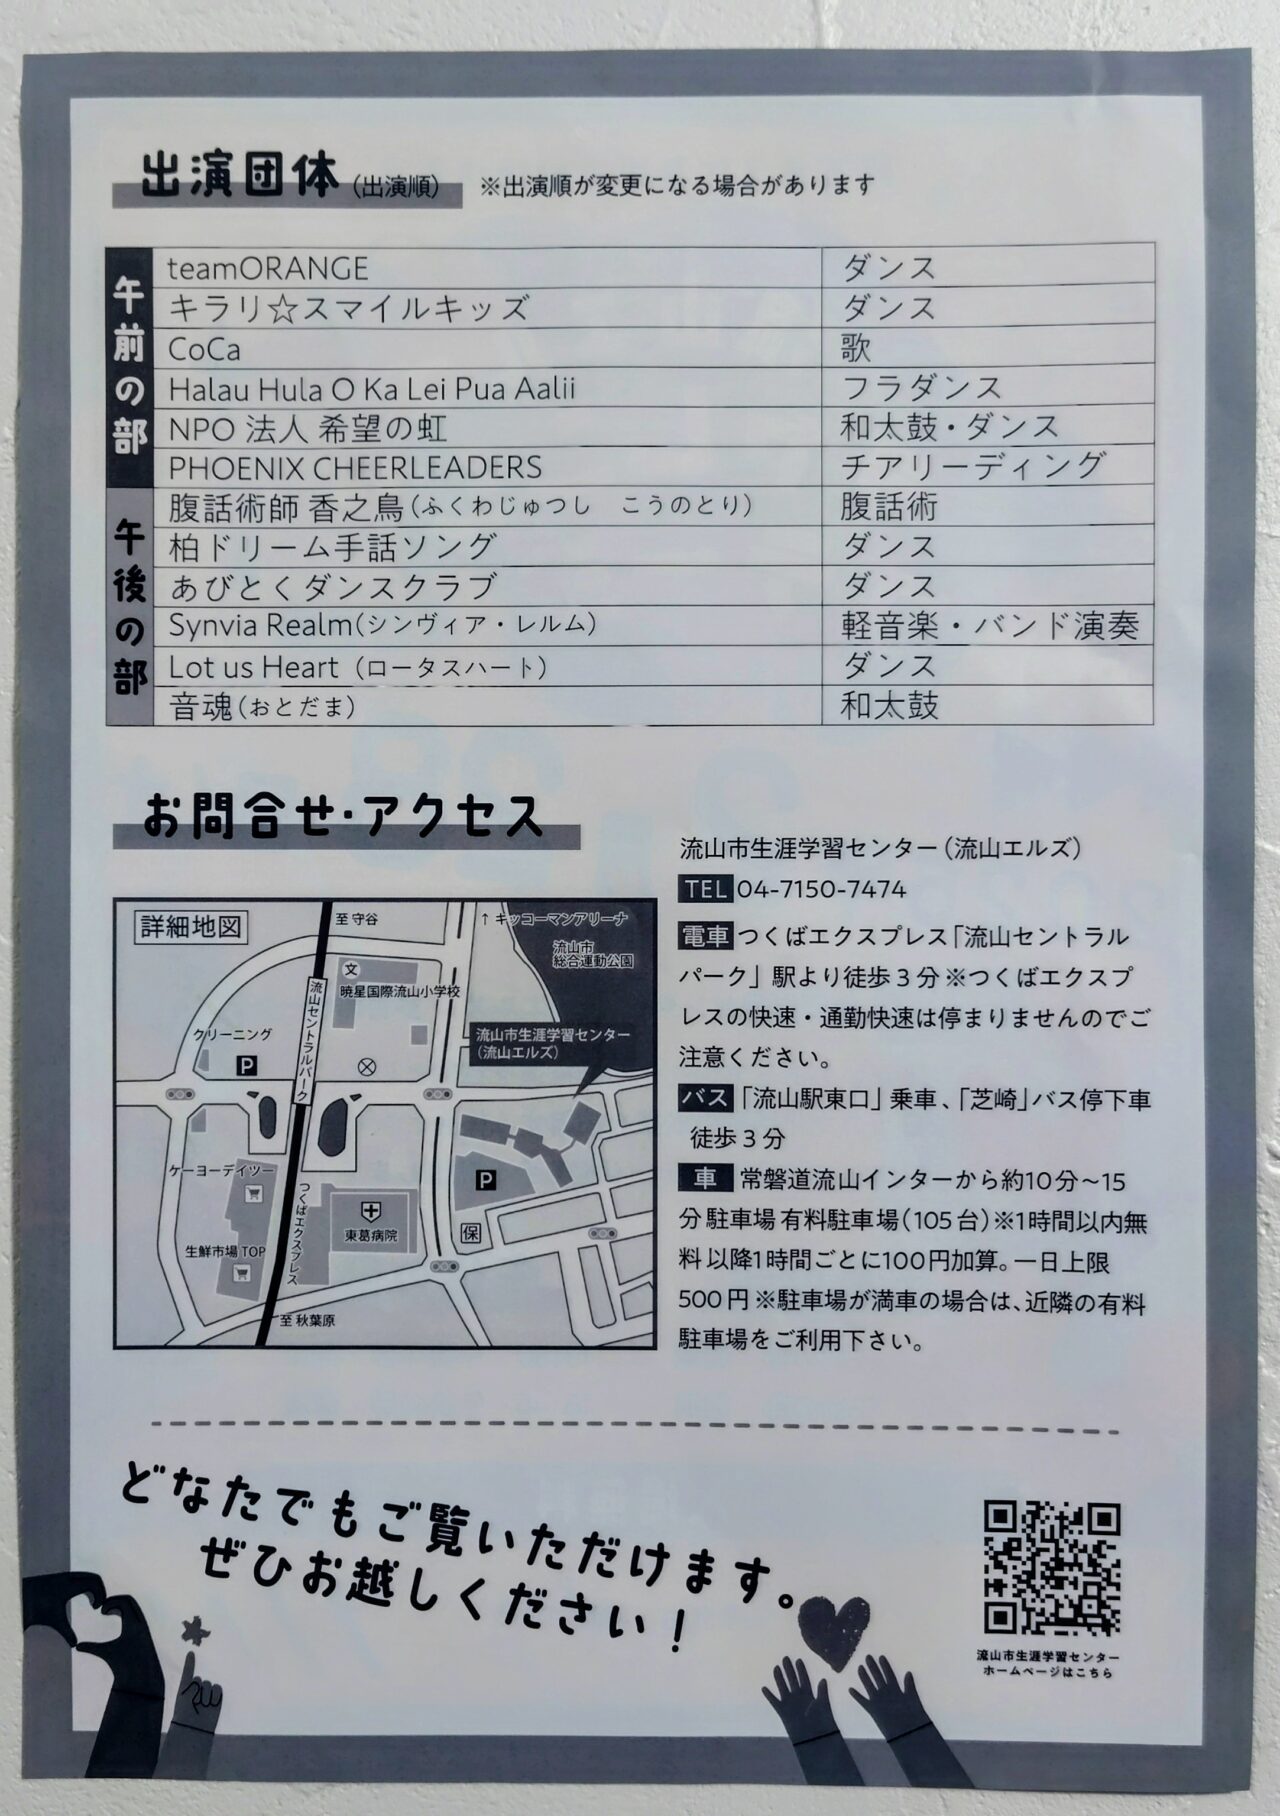 出演団体(出演順) ※出演順が変更になる場合があります
午前の部
teamORANGE ダンス
キラリ☆スマイルキッズ ダンス
CoCa 歌
Halau Hula O Ka Lei Pua Aalii フラダンス
NPO 法人 希望の虹 和太鼓・ダンス
PHOENIX CHEERLEADERS チアリーディング
午後の部
腹話術師 香之鳥(ふくわじゅつし こうのとり) 腹話術
柏ドリーム手話ソング ダンス
あびとくダンスクラブ ダンス
Synvia Realm(シンヴィア・レルム) 軽音楽・バンド演奏
Lot us Heart (ロータスハート) ダンス
音魂(おとだま) 和太鼓
お問合せ・アクセス
詳細地図
至 守谷
↑キッコーマンアリーナ
流山市
総合運動公園
文
暁星国際流山小学校
流山セントラルパーク
クリーニング
P
流山市生涯学習センター
(流山エルズ)
ケーヨーデイツー
つくばエクスプレス
P
東葛病院
保
生鮮市場 TOP
至 秋葉原
流山市生涯学習センター(流山エルズ)
TEL 04-7150-7474
電車 つくばエクスプレス「流山セントラル
パーク」駅より徒歩3分※つくばエクスプ
レスの快速・通勤快速は停まりませんのでご
注意ください。
バス「流山駅東口」乗車、「芝崎」バス停下車
徒歩3分
車 常磐道流山インターから約10分〜15
分 駐車場 有料駐車場(105台)※1時間以内無
料 以降1時間ごとに100円加算。一日上限
500円※駐車場が満車の場合は、近隣の有料
駐車場をご利用下さい。
どなたでもご覧いただけます。
ぜひお越しください!
流山市生涯学習センター
ホームページはこちら